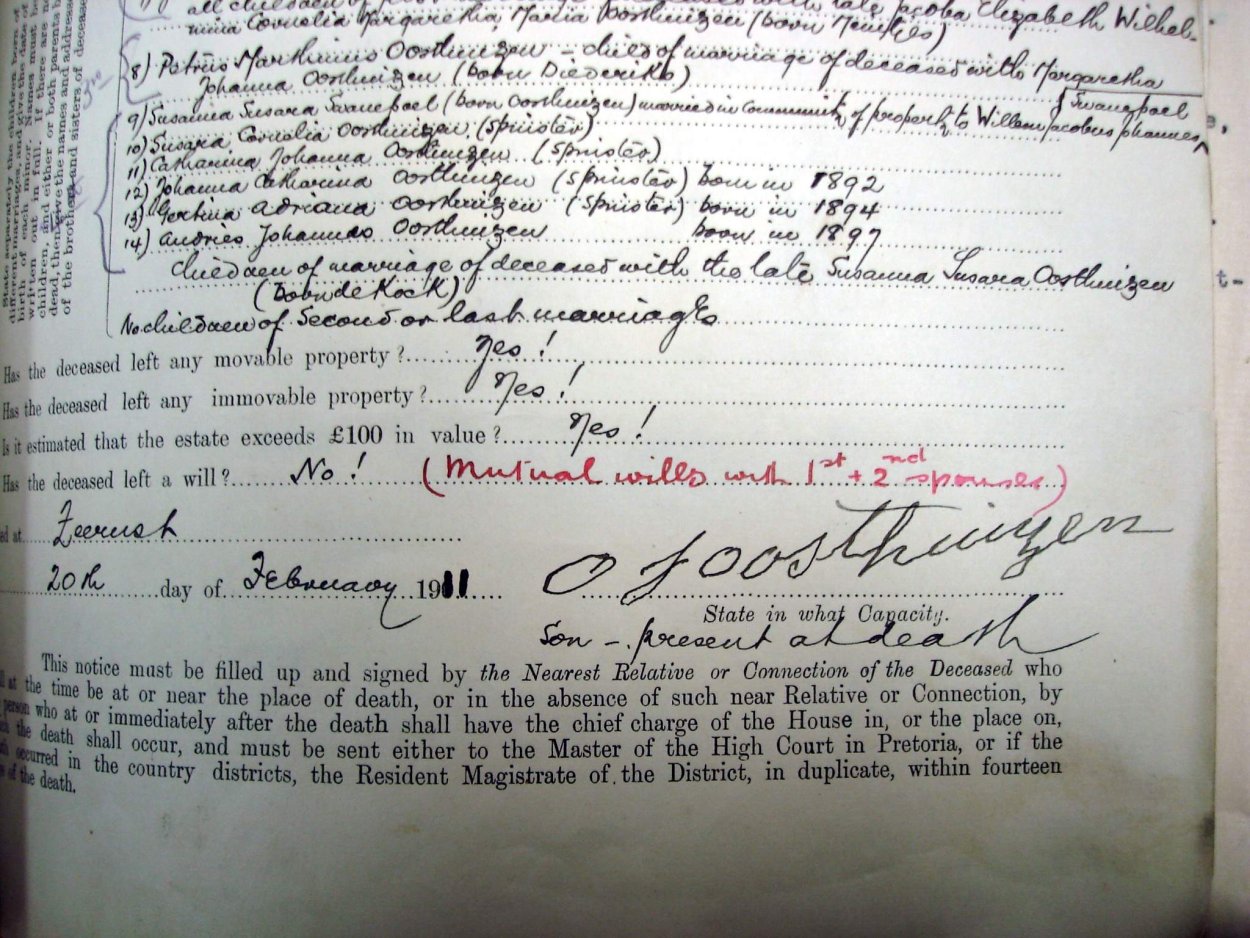 all children of marriage of deceased with late Jacoba Elizabeth Wilhel-
mina Cornelia Margaretha Maria Oosthuizen (born Meintjes)
8) Petrus Marthinus Oosthuizen – child of marriage of deceased with Margaretha
Johanna Oosthuizen (born Diederiks)
9) Susanna Susara Swanepoel (born Oosthuizen) married in Community of property to Willem Jacobus Johannes
Swanepoel
10) Susara Cornelia Oosthuizen (Spinster)
11) Catharina Johanna Oosthuizen (Spinster)
12) Johanna Catharina Oosthuizen (Spinster) born in 1892
13) Gertina Adriana Oosthuizen (Spinster) born in 1894
14) Andries Johannes Oosthuizen born in 1897
children of marriage of deceased with the late Susanna Susara Oosthuizen
(born de Kock)
No children of second or last marriage
Has the deceased left any movable property? Yes!
Has the deceased left any immovable property? Yes!
Is it estimated that the estate exceeds £100 in value? Yes!
Has the deceased left a will? No! (Mutual wills with 1st + 2nd spouses)
ed at Zeerust
20th day of February 1911
O J Oosthuizen
State in what Capacity.
Son – present at death
This notice must be filled up and signed by the Nearest Relative or Connection of the Deceased who
at the time be at or near the place of death, or in the absence of such near Relative or Connection, by
person who at or immediately after the death shall have the chief charge of the House in, or the place on,
the death shall occur, and must be sent either to the Master of the High Court in Pretoria, or if the
occurred in the country districts, the Resident Magistrate of the District, in duplicate, within fourteen
of the death.
State separately the children born of
different marriages, and give the date of
birth of each minor. Names must be
written out in full. If there are
children, and either or both parents be
dead, then give the names and addresses
of the brothers and sisters of deceased